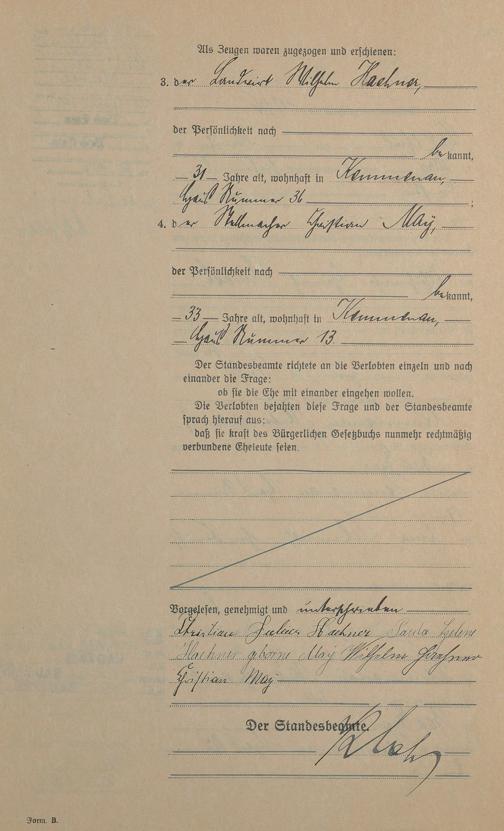 Als Zeugen waren zugezogen und erschienen:
3. der Landwirt Wilhelm Haehner,
der Persönlichkeit nach
bekannt,
31 Jahre alt, wohnhaft in
Haus Nummer 36 ;
4. der Stellmacher Christian May,
der Persönlichkeit nach
bekannt,
33 Jahre alt, wohnhaft in
Haus Nummer 13.
Der Standesbeamte richtete an die Verlobten einzeln und nach
einander die Frage:
ob sie die Ehe mit einander eingehen wollen.
Die Verlobten bejahten diese Frage und der Standesbeamte
sprach hierauf aus:
daß sie kraft des Bürgerlichen Gesetzbuchs nunmehr rechtmäßig
verbundene Eheleute seien.
Vorgelesen, genehmigt und unterschrieben
Christian Haehner
Haehner geborne May Wilhelm Haehner
Christian May
Der Standesbeamte.
Form. B.